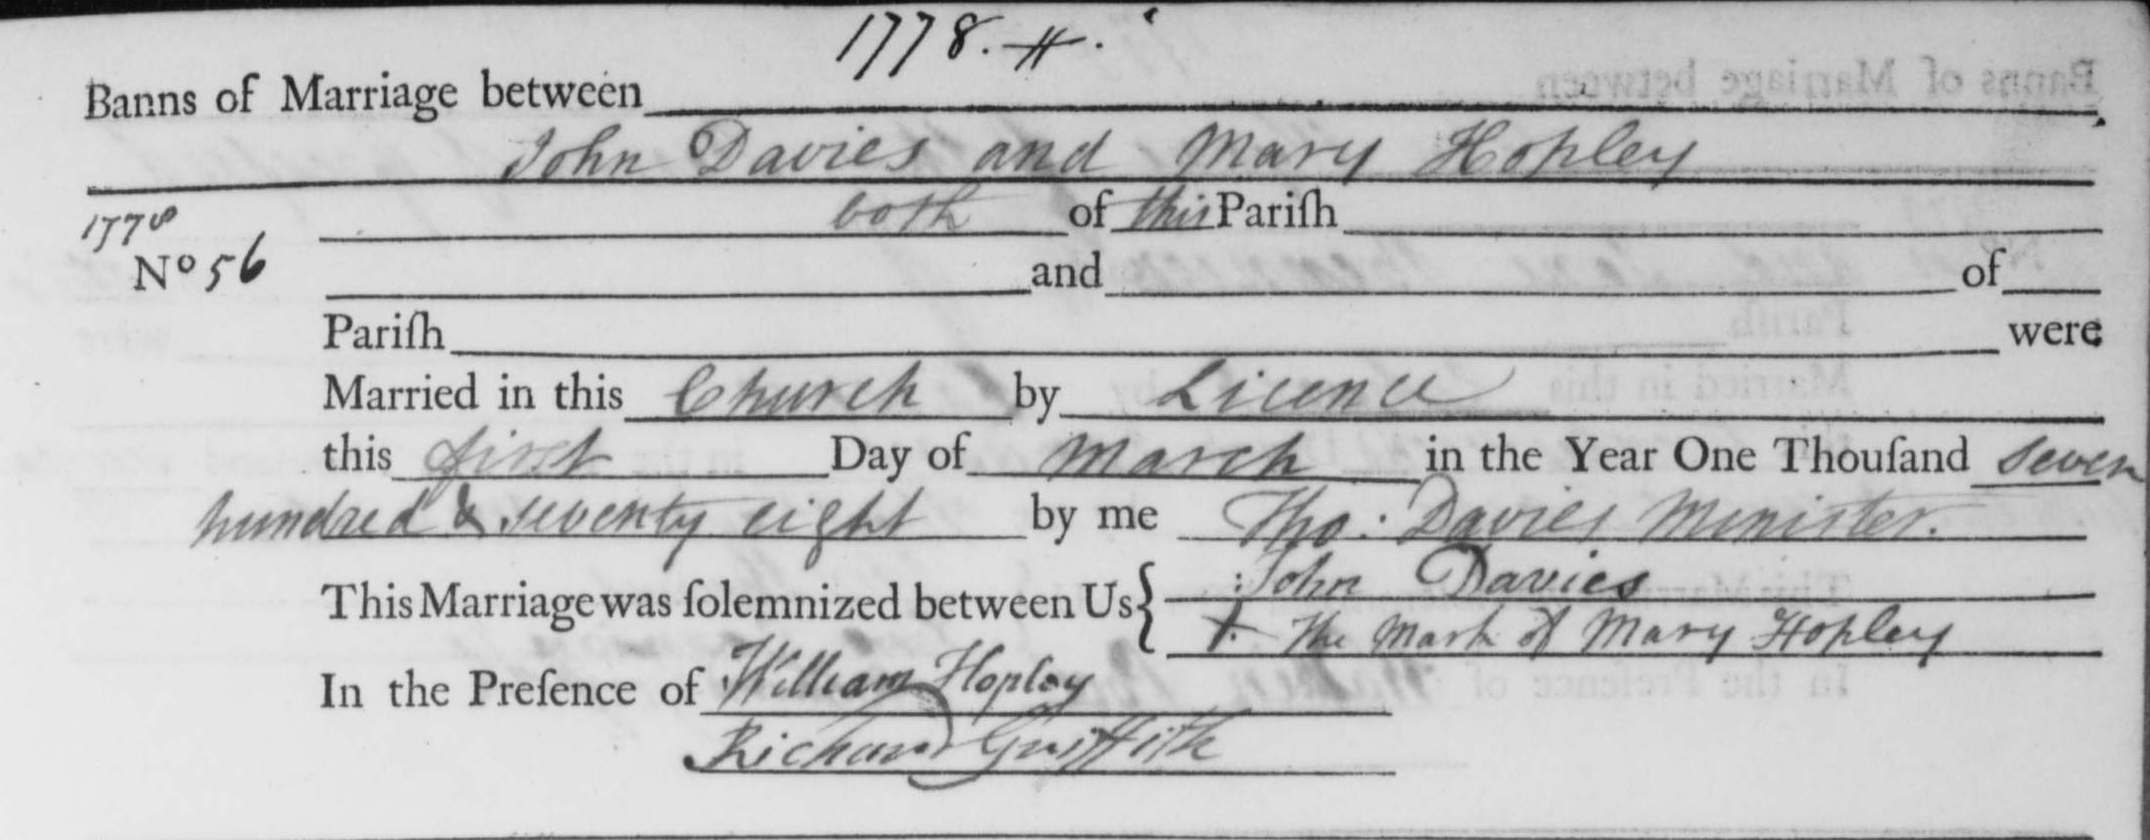 1778.
Banns of Marriage between
John Davies and Mary Hopley
both of this Pariſh
1778
No 56
and of
Pariſh were
Married in this Church by Licence
this first Day of March in the Year One Thouſand seven
hundred & seventy eight by me Tho: Davies Minister.
This Marriage was ſolemnized between Us { John Davies
X The Mark of Mary Hopley
In the Preſence of William Hopley
Richard Griffith